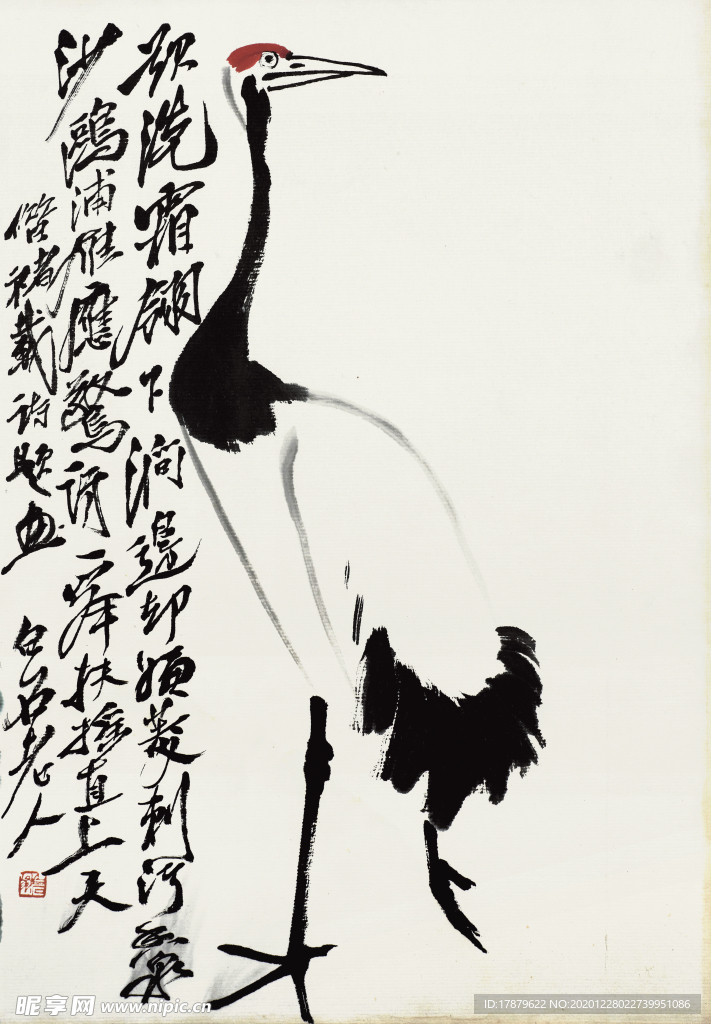 欲洗霜翎下澗邊却嫌菱刺污香泉
沙鷗浦雁應驚訝一舉扶摇直上天
借褚載詩題畫 白石老人
昵享网 www.nipic.cn
ID:17879622 NO:20201228022739951086